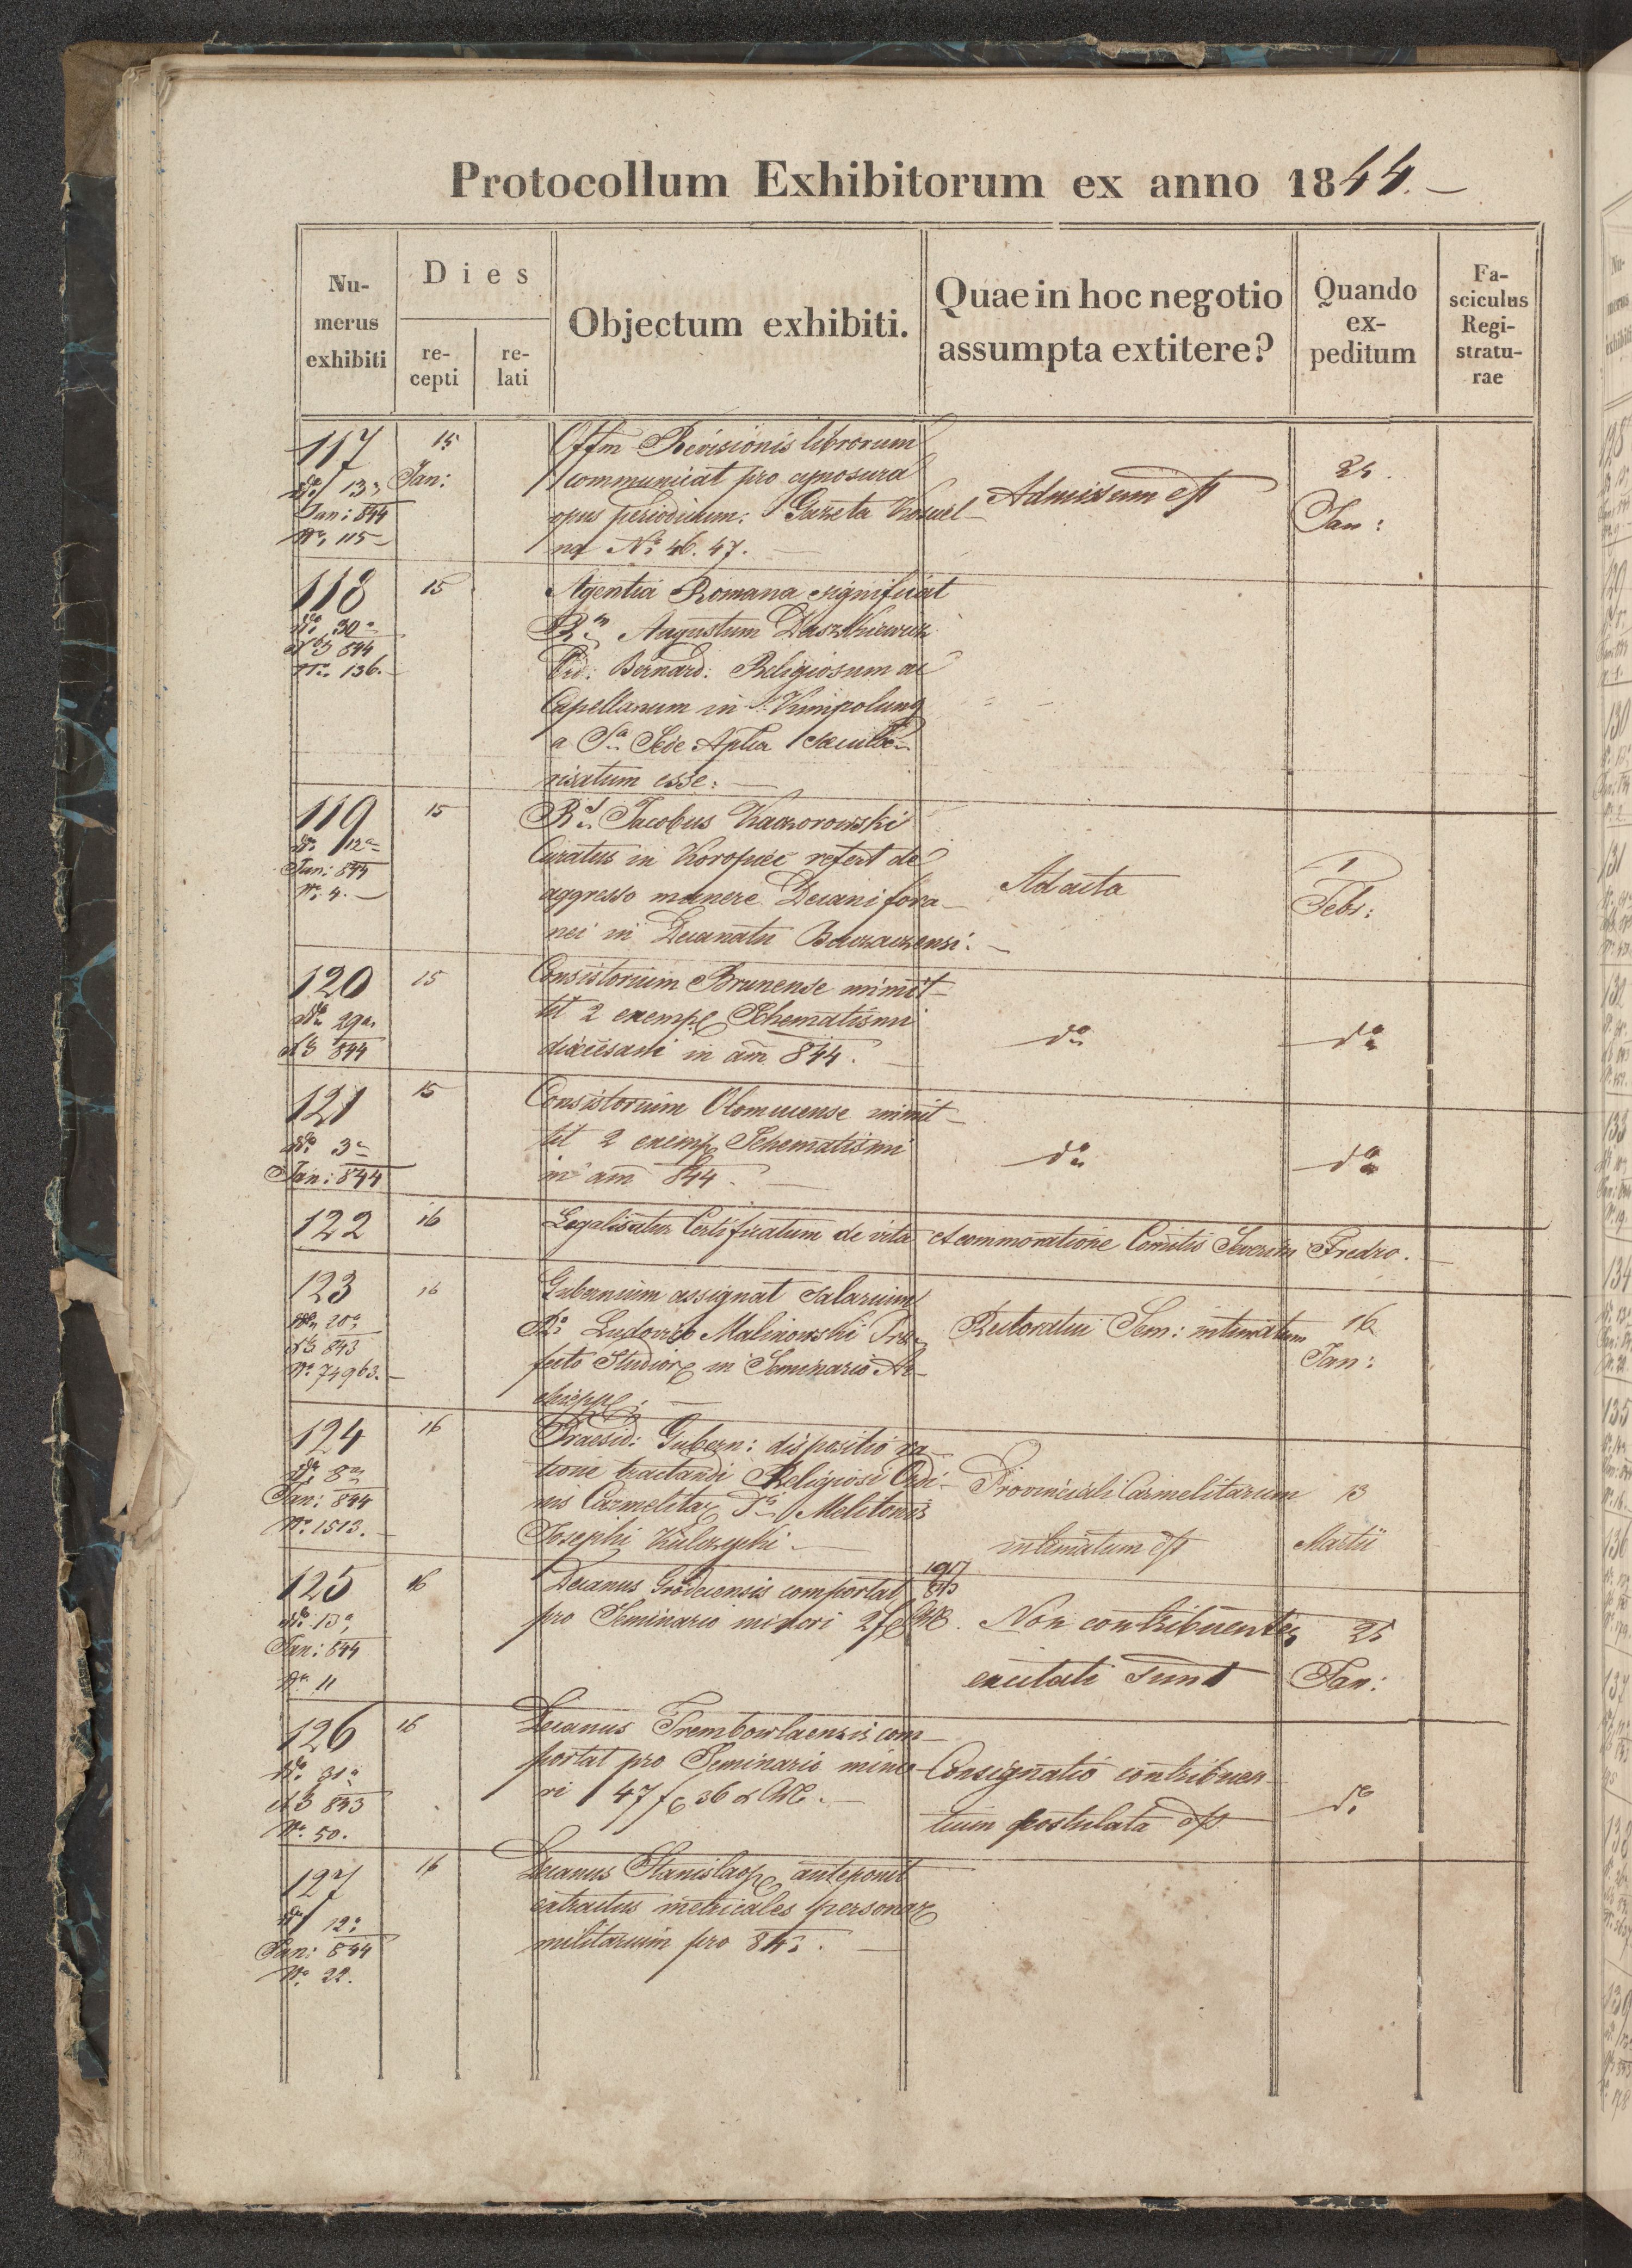 Protocollum Exhibitorum ex anno 1844.
Nu-
merus
exhibiti
Dies
re-
cepti
re-
lati
Objectum exhibiti.
Quae in hoc negotio
assumpta extitere?
Quando
ex-
peditum
Fa-
sciculus
Regi-
stratu-
rae
117
15
Jan:
Jan: 844
No 115
Offm Revisionis librorum
communicat pro cynosura
opus periodicum: Gazeta Kościel-
na No 46. 47.
Admissum est
Jan:
118
15
844
No 136.
Agentia Romana significat
Augustum
Ord: Bernard: Religiosum ac
Capellanum in Kimpolung
a Sa Sede Aplica saecula-
risatum esse.
119
15
do 12a
Jan: 844
No 4.
Rd Jacobus Kaczorowski
Curatus in Koropiec refert de
aggresso munere Decani fora-
nei in Decanatu Buczaczensi.
Ad acta
1
Febr:
120
15
do 29a
844
Consistorium Brunense immit-
tit 2 exempl Schematismi
dioecesani in am 844.
do
do
121
15
do 3a
Jan: 844
Consistorium Olomucense immit-
tit 2 exempl Schematismi
in am 844.
do
do
122
16
Legalisatur Certificatum de vita et commoratione Comitis Severini Fredro.
123
16
do 20a
843
No 74963.
Gubernium assignat salarium
Ro Ludovico Malinowski Prae-
fecto Studior in Seminario Ar-
chieppl.
Rectoratui Sem: intimatum
16
Jan:
124
16
do 8a
Jan: 844
No 1513.
Praesid: Gubern: dispositio ra-
tione tractandi Religiosi Ordi-
nis Carmelitar Melitonis
Josephi
Provinciali Carmelitarum
intimatum est
13
Martii
125
16
do 13a
Jan: 844
No 11
Decanus Grodecensis comportat
pro Seminario minori 2 f
Non contribuentes
excitati sunt
25
Jan:
126
16
do 31a
843
No 50.
Decanus Trembowlaensis com-
portat pro Seminario mino-
ri 47 f 36 x CM.
Consignatio contribuen-
tium postulata est
do
127
16
do 12a
Jan: 844
No 22.
Decanus Stanislaop anteponit
extractus metricales personar
militarium pro 843.